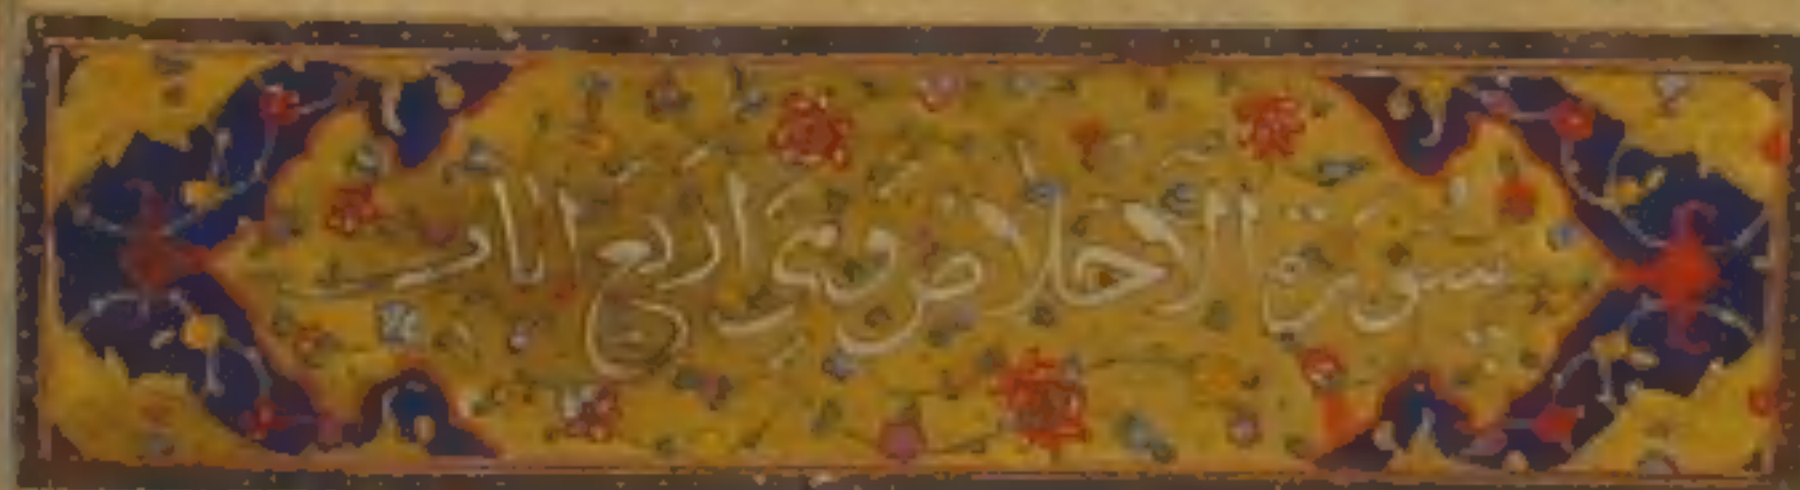 سورة الاخلاص وهى اربع ايات